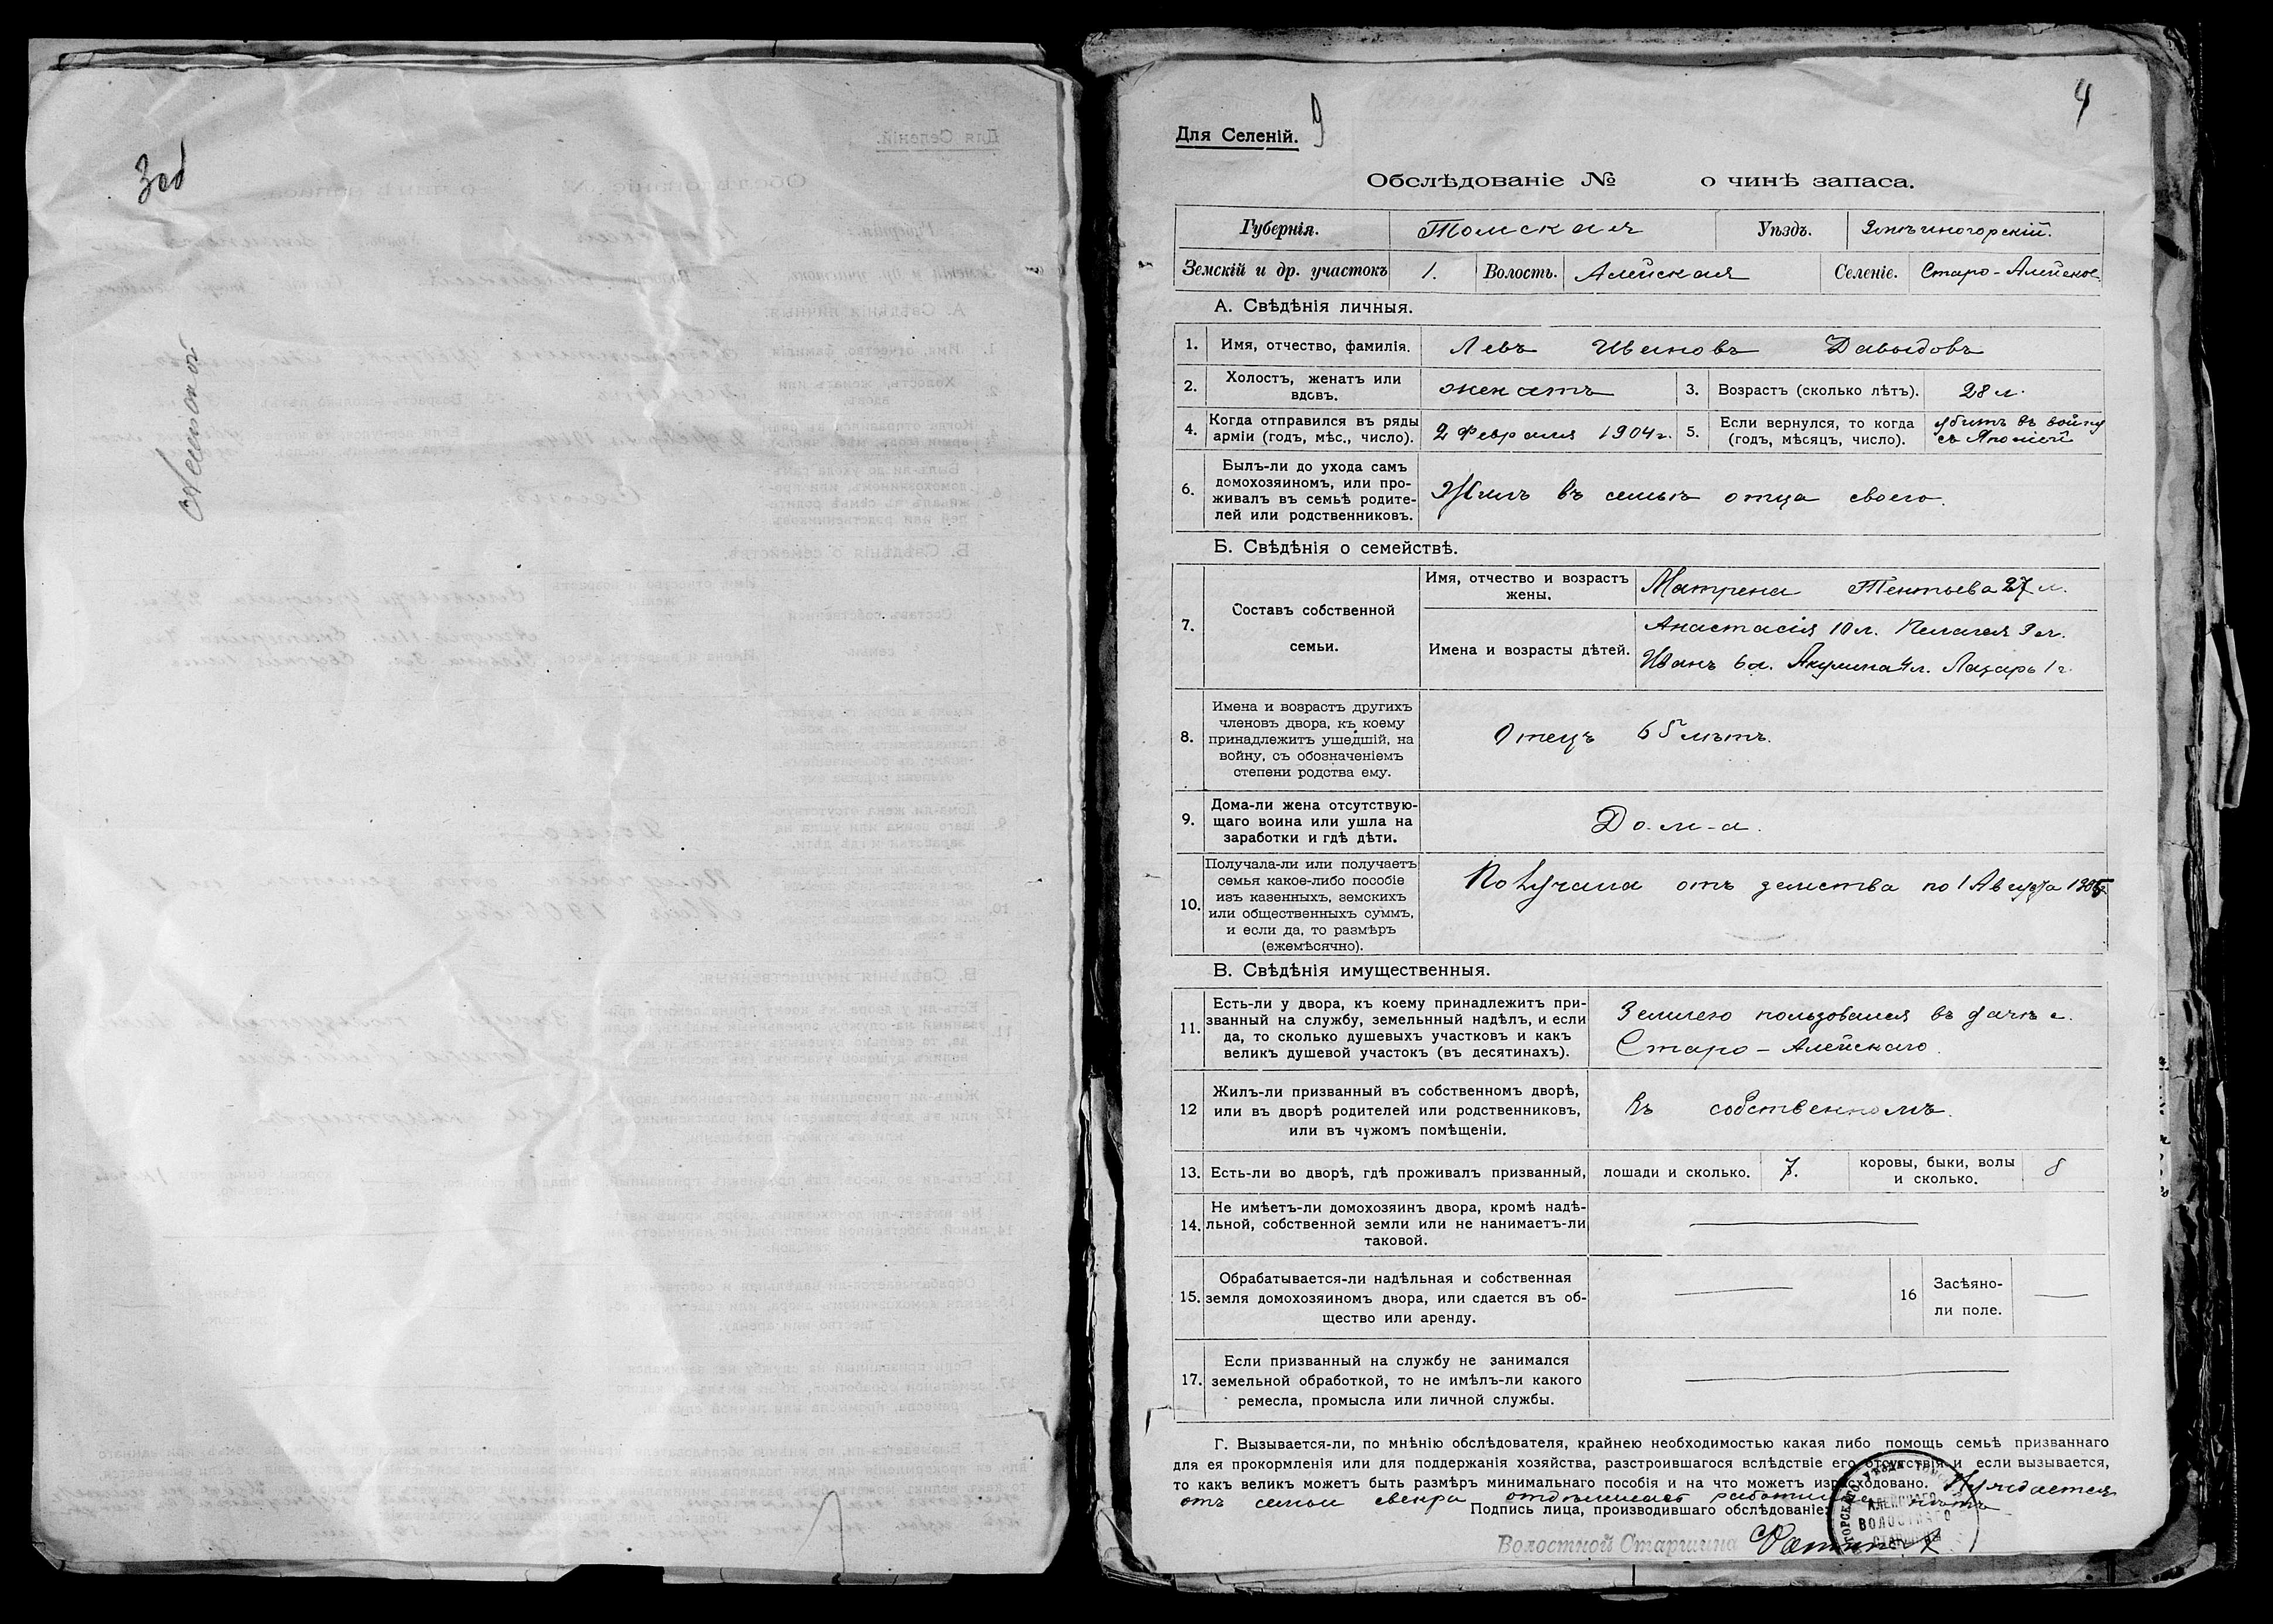 3об
4
9
Для Селеній.
Обслѣдованіе № о чинѣ запаса.
Губернія. Томская Уѣздъ. Змѣиногорскій.
Земскій и др. участокъ 1. Волость. Алейская Селеніе. Старо-Алейское
А. Свѣдѣнія личныя.
1. Имя, отчество, фамилія. Левъ Ивановъ Давыдовъ
2. Холостъ, женатъ или
вдовъ. женатъ 3. Возрастъ (сколько лѣтъ). 28 л.
4. Когда отправился въ ряды
арміи (годъ, мѣс., число). 2 Февраля 1904 г. 5. Если вернулся, то когда
(годъ, мѣсяцъ, число). убитъ въ войну
съ Японіей
6. Былъ-ли до ухода самъ
домохозяиномъ, или про-
живалъ въ семьѣ родите-
лей или родственниковъ. Жилъ въ семьѣ отца своего.
Б. Свѣдѣнія о семействѣ.
7. Составъ собственной
семьи.
Имя, отчество и возрастъ
жены. Матрена Тентьева 27 л.
Имена и возрасты дѣтей. Анастасія 10 л. Пелагея 9 л.
Иванъ 6 л. Акулина 4 л. Лазарь 1 г.
8. Имена и возрастъ другихъ
членовъ двора, къ коему
принадлежитъ ушедшій, на
войну, съ обозначеніемъ
степени родства ему. Отецъ 65 лѣтъ.
9. Дома-ли жена отсутствую-
щаго воина или ушла на
заработки и гдѣ дѣти. Дома.
10. Получала-ли или получаетъ
семья какое-либо пособіе
изъ казенныхъ, земскихъ
или общественныхъ суммъ,
и если да, то размѣръ
(ежемѣсячно). Получала отъ земства по 1 Августа
В. Свѣдѣнія имущественныя.
11. Есть-ли у двора, къ коему принадлежитъ при-
званный на службу, земельнный надѣлъ, и если
да, то сколько душевыхъ участковъ и какъ
великъ душевой участокъ (въ десятинахъ). Землею пользовался въ дачѣ с.
Старо-Алейскаго.
12 Жилъ-ли призванный въ собственномъ дворѣ,
или въ дворѣ родителей или родственниковъ,
или въ чужомъ помѣщеніи. Въ собственномъ.
13. Есть-ли во дворѣ, гдѣ проживалъ призванный, лошади и сколько. 7. коровы, быки, волы
и сколько. 8
14. Не имѣетъ-ли домохозяинъ двора, кромѣ надѣ-
льной, собственной земли или не нанимаетъ-ли
таковой.
15. Обрабатывается-ли надѣльная и собственная
земля домохозяиномъ двора, или сдается въ об-
щество или аренду.
16 Засѣяно-
ли поле.
17. Если призванный на службу не занимался
земельной обработкой, то не имѣлъ-ли какого
ремесла, промысла или личной службы.
Г. Вызывается-ли, по мнѣнію обслѣдователя, крайнею необходимостью какая либо помощь семьѣ призваннаго
для ея прокормленія или для поддержанія хозяйства, разстроившагося вслѣдствіе его отсутствія и если вызывается,
то какъ великъ можетъ быть размѣръ минимальнаго пособія и на что можетъ израсходовано. Нуждается
отъ семьи свекра отдѣлилась нѣтъ
Подпись лица, производившаго обслѣдованіе:
Волостной Старшина
АЛЕЙСКАГО
ВОЛОСТНАГО
СТАРШИНЫ